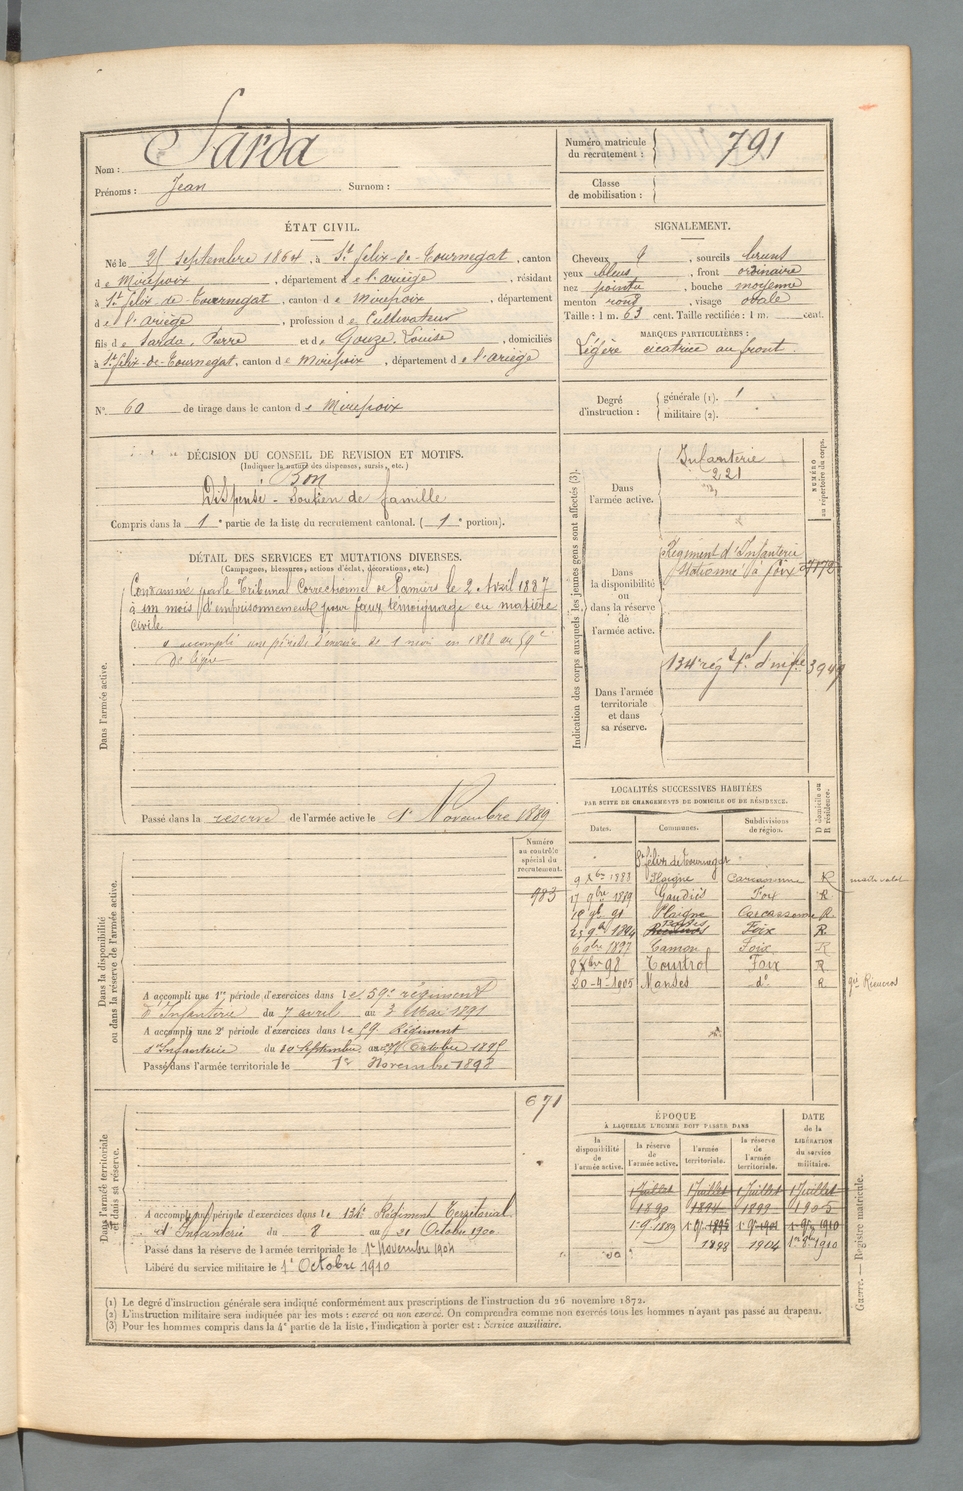 Nom : Sarda
Prénoms : Jean Surnom :
Numéro matricule du recrutement : 791
Classe de mobilisation :
ÉTAT CIVIL.
Né le septembre 1864, à St félix-de-Tournegat, canton
de Mirepoix, département de l'ariège, résidant
à St félix-de-Tournegat, canton de Mirepoix, département
de l'ariège, profession de Cultivateur
fils de Sarda, Pierre et de Gouze, Louise, domiciliés
à St félix-de-Tournegat, canton de Mirepoix, département de l'ariège
N° 60 de tirage dans le canton de Mirepoix
SIGNALEMENT.
Cheveux , sourcils bruns
yeux bleus, front ordinaire
nez pointu, bouche moyenne
menton rond, visage ovale
Taille : 1 m. 63 cent. Taille rectifiée : 1 m. cent.
MARQUES PARTICULIÈRES :
Légère cicatrice au front.
Degré d'instruction : générale (1). 1
militaire (2).
DÉCISION DU CONSEIL DE REVISION ET MOTIFS.
(Indiquer la nature des dispenses, sursis, etc.)
Bon
Dispensé - Soutien de famille
Compris dans la 1e partie de la liste du recrutement cantonal. (1e portion).
DÉTAIL DES SERVICES ET MUTATIONS DIVERSES.
(Campagnes, blessures, actions d'éclat, décorations, etc.)
Dans l'armée active.
Condamné par le Tribunal Correctionnel de Pamiers le 2 Avril 1887
à un mois d'emprisonnement pour faux témoignage en matière
civile
a accompli une période d'exercice de 1 mois en 1888 au 59e
de ligne
Passé dans la réserve de l'armée active le 1er Novembre 1889
Indication des corps auxquels les jeunes gens sont affectés (3).
NUMÉRO au répertoire du corps.
Dans l'armée active.
Infanterie
221
Dans la disponibilité ou dans la réserve de l'armée active.
Régiment d'Infanterie
Stationné à foix
Dans l'armée territoriale et dans sa réserve.
134e rég t al d'inf ie 3949
Numéro au contrôle spécial du recrutement.
983
Dans la disponibilité ou dans la réserve de l'armée active.
A accompli une 1re période d'exercices dans le 59e régiment
d'Infanterie du 7 avril au 3 Mai 1891
A accompli une 2e période d'exercices dans le 59 Régiment
d'Infanterie du septembre au Octobre 1895
Passé dans l'armée territoriale le 1er Novembre 1898
LOCALITÉS SUCCESSIVES HABITÉES
PAR SUITE DE CHANGEMENTS DE DOMICILE OU DE RÉSIDENCE.
Dates. Communes. Subdivisions de région. D domicile ou R résidence.
St félix de Tournegat
9 Xbre 1888 Plaigne Carcassonne R
17 9bre 1889 Gaudiès Foix R
91 Plaigne Carcassonne R
1894 Foix R
6 9bre 1897 Camon Foix R
8 Xbre 98 Tourtrol Foix R
20-4-1905 Manses do R
671
Dans l'armée territoriale et dans sa réserve.
A accompli une période d'exercices dans le 134e Régiment Territorial
d'Infanterie du 8 au 21 Octobre 1900
Passé dans la réserve de l'armée territoriale le 1er Novembre 1904
Libéré du service militaire le 1er Octobre 1910
ÉPOQUE
À LAQUELLE L'HOMME DOIT PASSER DANS
DATE de la LIBÉRATION du service militaire.
la disponibilité de l'armée active. la réserve de l'armée active. l'armée territoriale. la réserve de l'armée territoriale.
1 Juillet 1 Juillet 1 Juillet 1 Juillet
1890 1894 1899 1905
1898 1904 1910
(1) Le degré d'instruction générale sera indiqué conformément aux prescriptions de l'instruction du 26 novembre 1872.
(2) L'instruction militaire sera indiquée par les mots : exercé ou non exercé. On comprendra comme non exercés tous les hommes n'ayant pas passé au drapeau.
(3) Pour les hommes compris dans la 4e partie de la liste, l'indication à porter est : Service auxiliaire.
Guerre. — Registre matricule.